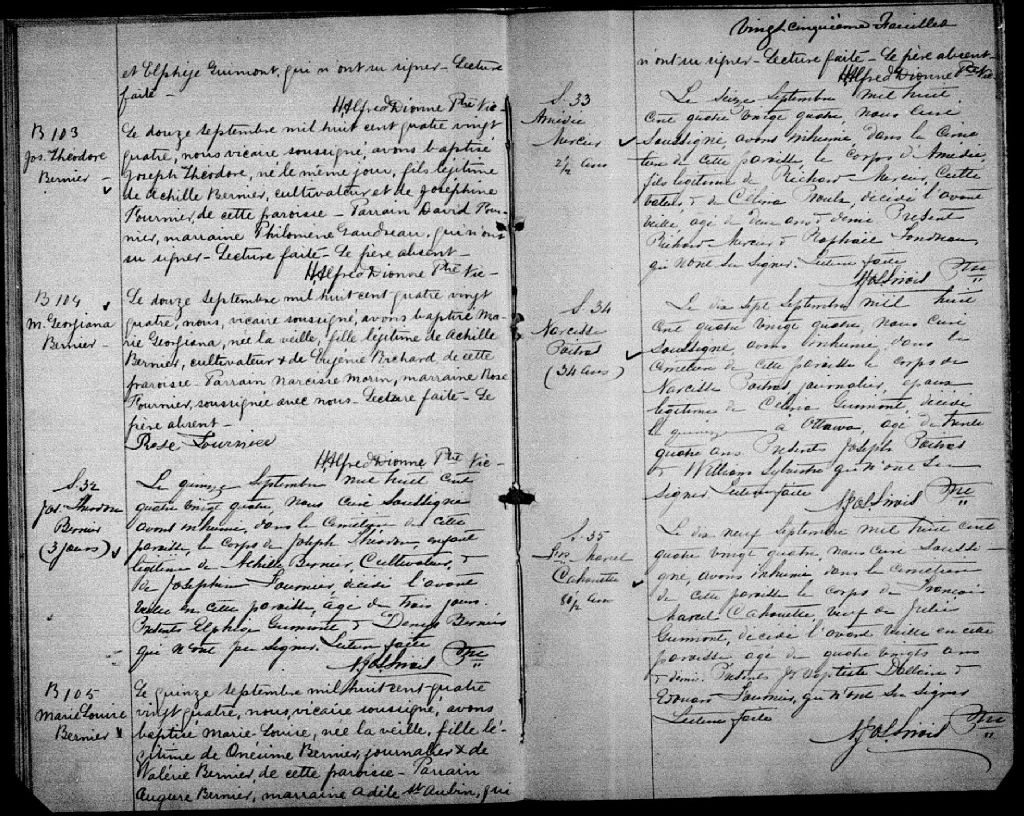 et Elphège Guimont, qui n'ont su signer - Lecture
faite -
H Alfred Dionne Ptre Vic-
B 103
Jos. Théodore
Bernier -
Le douze septembre mil huit cent quatre vingt
quatre, nous vicaire soussigné, avons baptisé
Joseph Théodore, né le même jour, fils légitime
de Achille Bernier, cultivateur et de Joséphine
Fournier, de cette paroisse - Parrain David Four-
nier, marraine Philomène Gaudreau, qui n'ont
su signer - Lecture faite - Le père absent -
H Alfred Dionne Ptre Vic-
B 104
M. Georgiana
Bernier -
Le douze septembre mil huit cent quatre vingt
quatre, nous, vicaire soussigné, avons baptisé Ma-
rie Georgiana, née la veille, fille légitime de Achille
Bernier, cultivateur & de Eugénie Richard de cette
paroisse - Parrain Narcisse Morin, marraine Rose
Fournier, soussignée avec nous - Lecture faite - Le
père absent -
Rose Fournier
H Alfred Dionne Ptre Vic-
S. 32
Jos. Theodore
Bernier
(3 jours)
Le quinze Septembre mil huit cent
quatre vingt quatre, nous Curé Soussigné
avons inhumé, dans le Cimetière de cette
paroisse, le corps de Joseph Theodore, enfant
légitime de Achille Bernier, Cultivateur, &
de Josephine Fournier, décédé l'avant
veille en cette paroisse, âgé de trois jours.
Présents Elphège Guimont & Denys Bernier
qui n'ont pu signer. Lecture faite
Ptre
B 105
Marie Louise
Bernier
Le quinze septembre mil huit cent quatre
vingt quatre, nous, vicaire soussigné, avons
baptisé Marie-Louise, née la veille, fille lé-
gitime de Onésime Bernier, journalier & de
Valérie Bernier, de cette paroisse - Parrain
Auguste Bernier, marraine Adèle St Aubin, qui
Vingt cinquième Feuillet
n'ont su signer - Lecture faite - Le père absent -
H Alfred Dionne Ptre Vic-
S. 33
Amédée
Mercier
2 1/2 ans
Le Seize Septembre mil huit
cent quatre vingt quatre, nous Curé
Soussigné, avons inhumé, dans le Cime-
tière de cette paroisse, le corps d'Amédée,
fils légitime de Richard Mercier, Culti-
vateur & de Célina Proulx, décédé l'avant
veille, agé de deux ans & demi. Présents
Richard Mercier & Raphaël
qui n'ont Su Signer. Lecture faite
Ptre
S. 34
Narcisse
Poitras
(34 ans)
Le dix Sept Septembre mil huit
cent quatre vingt quatre, nous curé
Soussigné, avons inhumé, dans le
Cimetière de cette paroisse le corps de
Narcisse Poitras journalier, époux
légitime de Célina Guimont, décédé
le quinze à Ottawa, agé de trente
quatre ans Présents Joseph Poitras
& William Sylvestre qui n'ont Su
Signer Lecture faite
Ptre
S. 35
Frs Marcel
Cahouette
80 1/2 ans
Le dix neuf Septembre mil huit cent
quatre vingt quatre, nous Curé Soussi-
gné, avons inhumé, dans le Cimetière
de cette paroisse le corps de François
Marcel Cahouette veuf de Julie
Guimont, décédé l'avant veille en cette
paroisse agé de quatre vingts ans
& demi. Présents Jn Baptiste &
Edouard Fournier, qui n'ont Su Signer
Lecture faite
Ptre